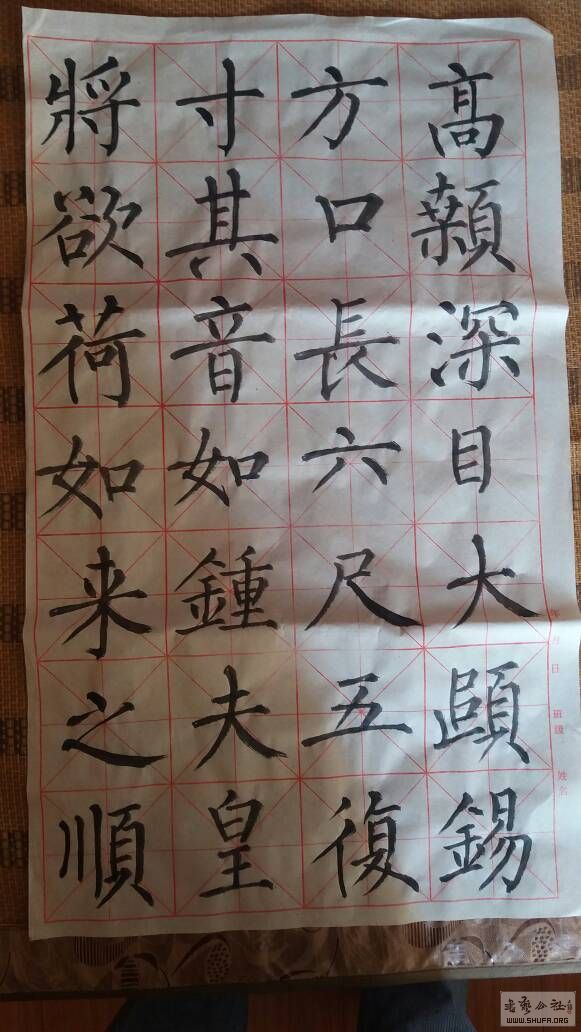 高顙深目大頤錫
方口長六尺五復
寸其音如鍾夫皇
將欲荷如来之順
年 月 日 班級 姓名
书艺公社
WWW.SHUFA.ORG